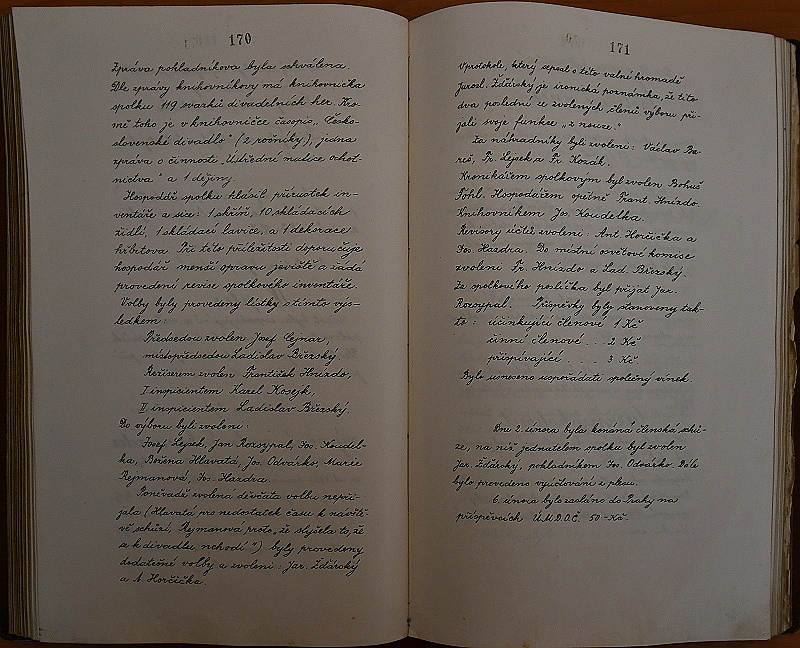 170
Zpráva pokladníkova byla schválena.
Dle zprávy knihovníkovy má knihovnička
spolku 119 svazků divadelních her. Kro-
mě toho je v knihovničce časopis „Česko-
slovenské divadlo" (2 ročníky), jedna
zpráva o činnosti „Ústřední matice ochot-
nictva" a 1 dějiny.
Hospodář spolku hlásil přírustek in-
ventáře a sice: 1 skříň, 10 skládacích
židlí, 1 skládací lavice, a 1 dekorace
hřbitova. Při této příležitosti doporučuje
hospodář menší opravu jeviště a žádá
provedení revise spolkového inventáře.
Volby byly provedeny lístky s tímto výs-
ledkem:
Předsedou zvolen Josef Lejnar,
místopředsedou Ladislav Březský.
Režiserem zvolen František Hnízdo,
I. inspicientem Karel Kosejk,
II. inspicientem Ladislav Březský
Do výboru byli zvoleni:
Josef Lejsek, Jan Rozsypal, Jos. Koudel-
ka, Božena Hlavatá, Jos. Odvárko, Marie
Rejmanová, Jos. Hazdra.
Poněvadž zvolená děvčata volbu nepři-
jala (Hlavatá pro nedostatek času k návště-
vě schůzí, Rejmanová proto „že slyšela to, že
a k divadlu nchodí") byly provedeny
dodatečné volby a zvoleni: Jar. Žďárský
a A. Horčička.
171
V protokole, který sepsal o této valné hromadě
Jarosl. Žďárský je ironická poznámka, že tito
dva poslední ze zvolených členů výboru při-
jali svoje funkce „z nouze."
Za náhradníky byli zvoleni: Václav Ba-
reš, Fr. Lejsek a Fr. Kozák.
Kronikářem spolkovým byl zvolen Bohuš
Föhl. Hospodářem opětně Frant. Hnízdo.
Knihovníkem Jos. Koudelka.
Revisory účtů zvoleni: Ant. Horčička a
Jos. Hazdra. Do místní osvětové komise
zvoleni Fr. Hnízdo a Lad. Březský.
Za spolkového poslíčka byl přijat Jar.
Rozsypal. Příspěvky byly stanoveny tak-
to: účinkující členové 1 Kč
činní členové . . 2 Kč
přispívající . . . 3 Kč.
Bylo usneseno uspořádati společný vínek.
Dne 2. února byla konána členská schů-
ze, na níž jednatelem spolku byl zvolen
Jar. Žďárský, pokladníkem Jos. Odvárko. Dále
bylo provedeno vyúčtování z plesu.
6. února bylo zasláno do Prahy na
příspěvcích Ú.M.D.O.Č. 50 Kč.